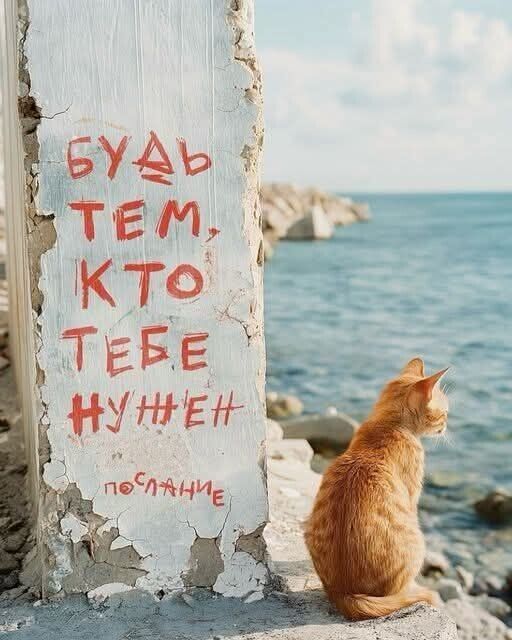 БУДЬ
ТЕМ,
КТО
ТЕБЕ
НУЖЕН
ПОСЛАНИЕ